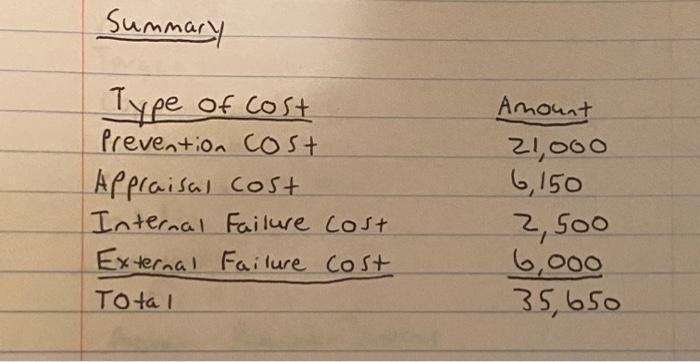 Summary
Type of Cost Amount
Prevention Cost 21,000
Appraisal Cost 6,150
Internal Failure Cost 2,500
External Failure Cost 6,000
Total 35,650